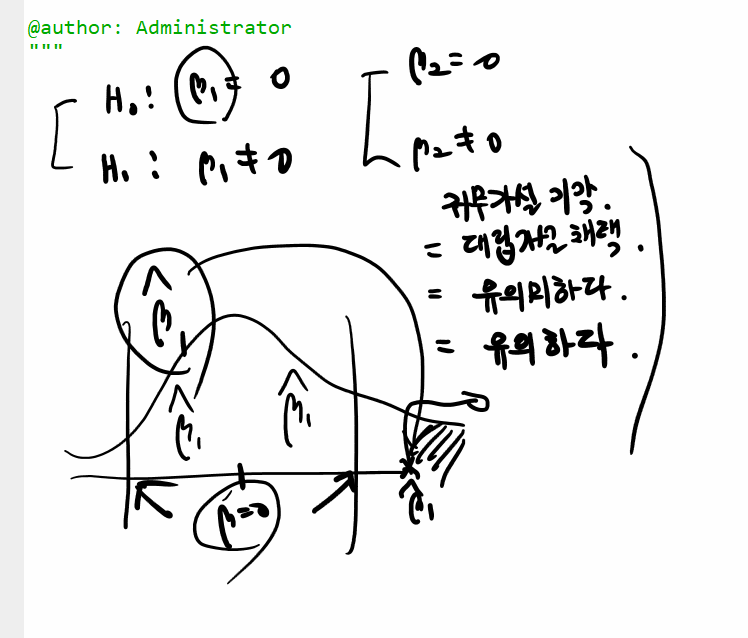 @author: Administrator
"""
H₀: β₁ = 0
H₁: β₁ ≠ 0
β₂ = 0
β₂ ≠ 0
귀무가설 기각.
= 대립가설 채택.
= 유의미하다.
= 유의하다.
β̂₁
β̂₁
β̂₁
β=0
β̂₁